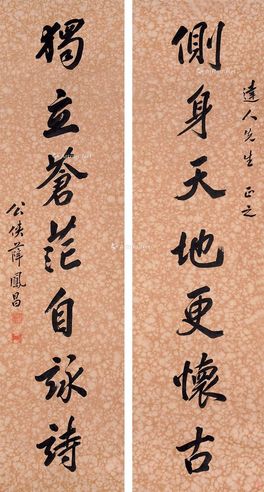 達人先生正之
側身天地更懷古
獨立蒼茫自詠詩
公俠薛鳳昌